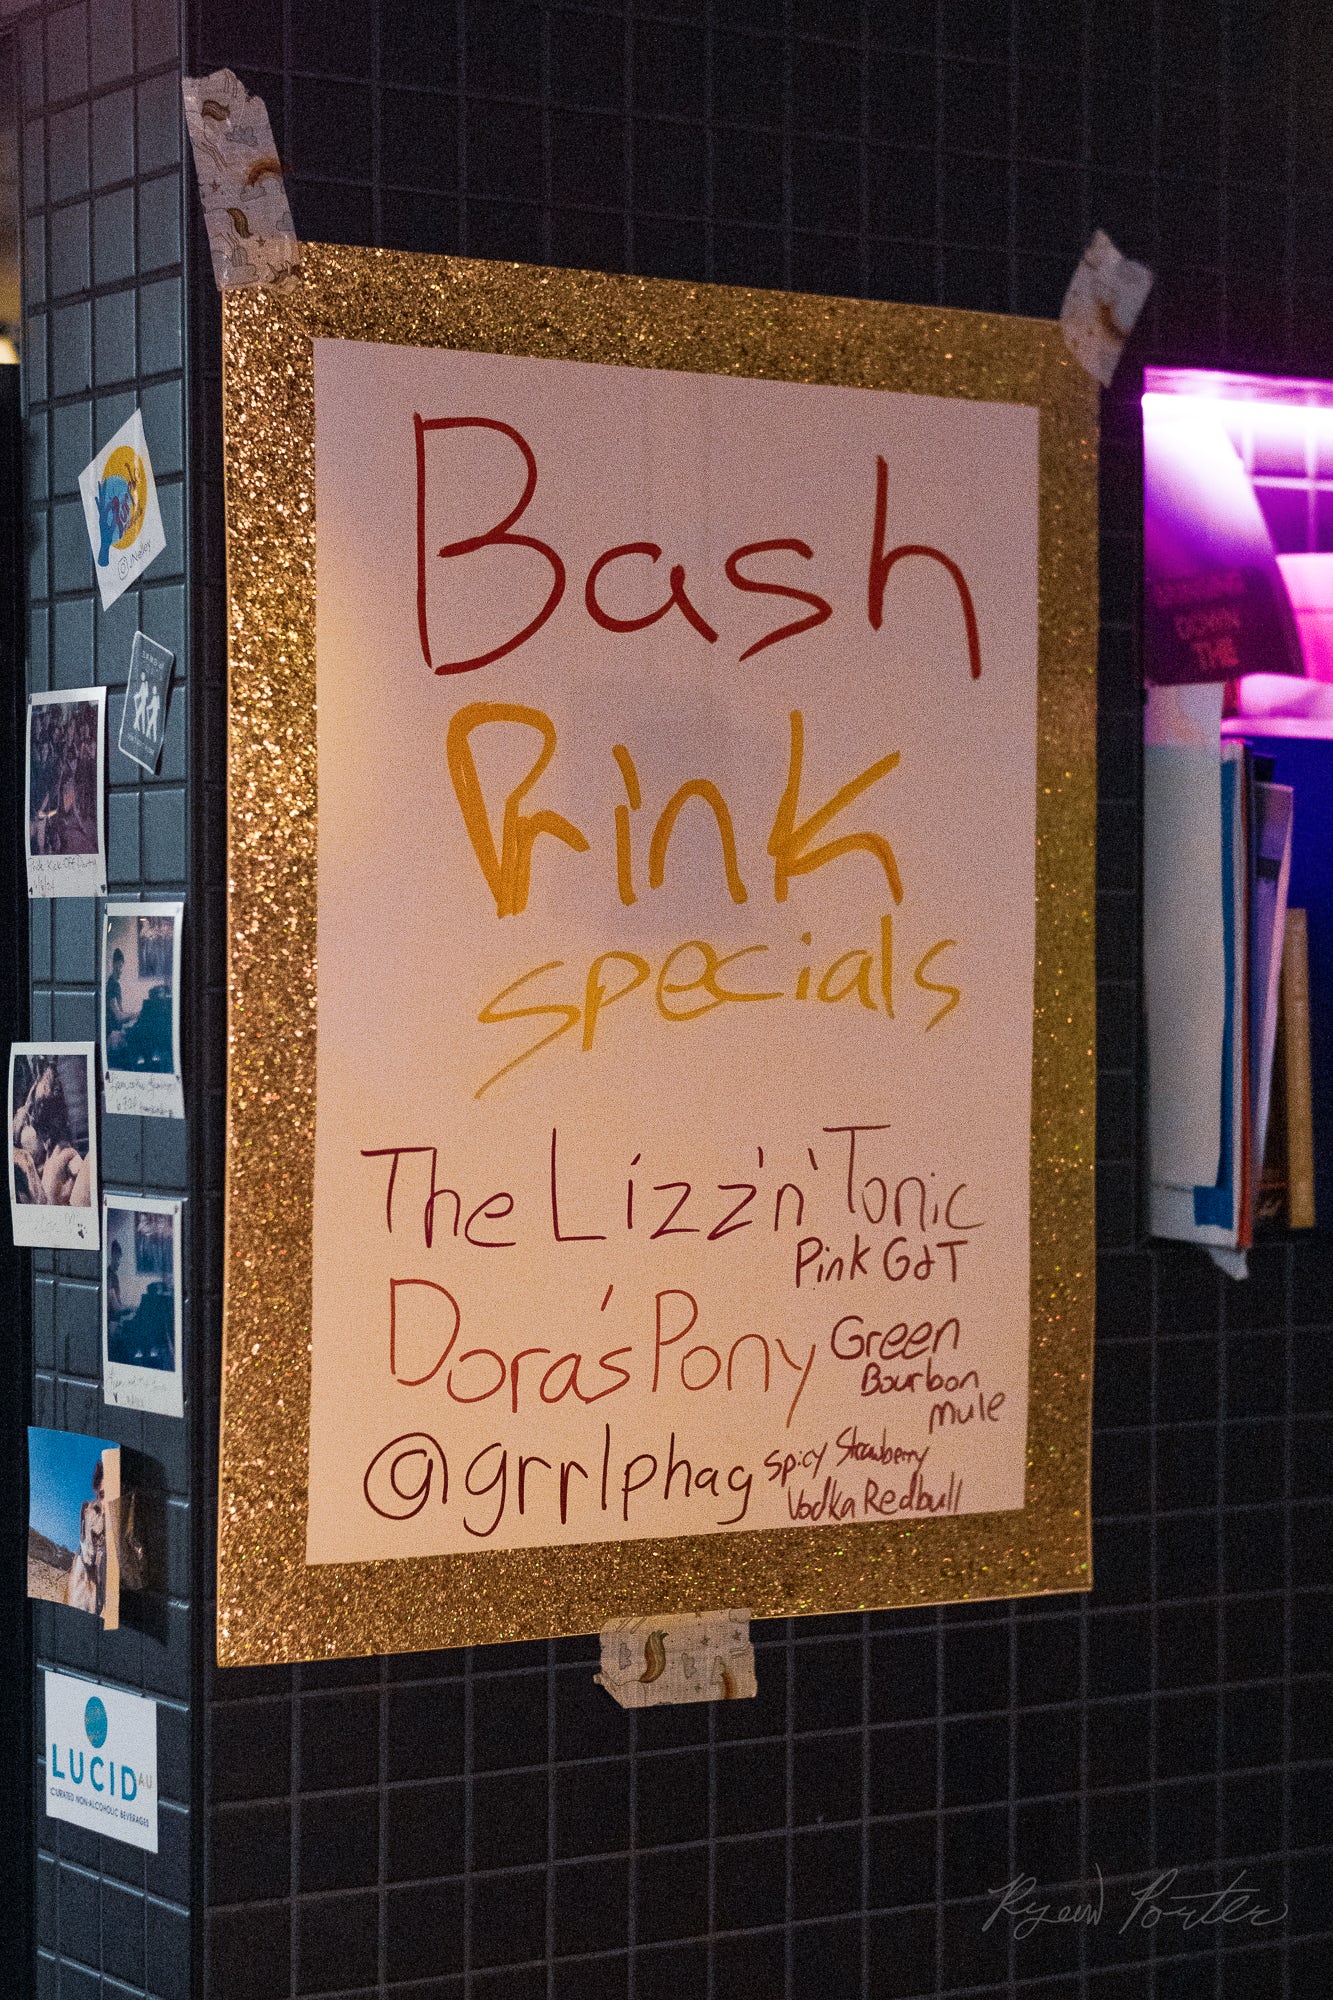 Bash
Drink
specials
The Lizz'n'Tonic
Pink G&T
Dora's Pony
Green
Bourbon
Mule
@grrlphag
Spicy Strawberry
Vodka Redbull
@JNelley
LUCID AU
CURATED NON-ALCOHOLIC BEVERAGES
DOWN
THE
Ryan Porter